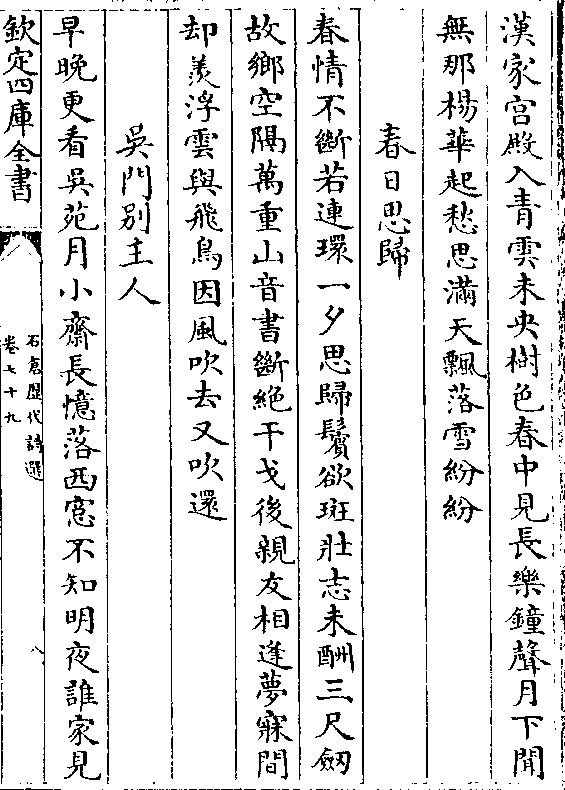 漢家宫殿入青雲未央樹色春中見長樂鐘聲月下聞
無那楊華起愁思滿天飄落雪紛紛
春日思歸
春情不斷若連環一夕思歸鬢欲斑壯志未酬三尺劔
故鄉空隔萬重山音書斷絶干戈後親友相逢夢寐間
却羨浮雲與飛鳥因風吹去又吹還
吳門別主人
早晩更看吳苑月小齋長憶落西窓不知明夜誰家見
欽定四庫全書
石倉歴代詩選
卷七十九
八